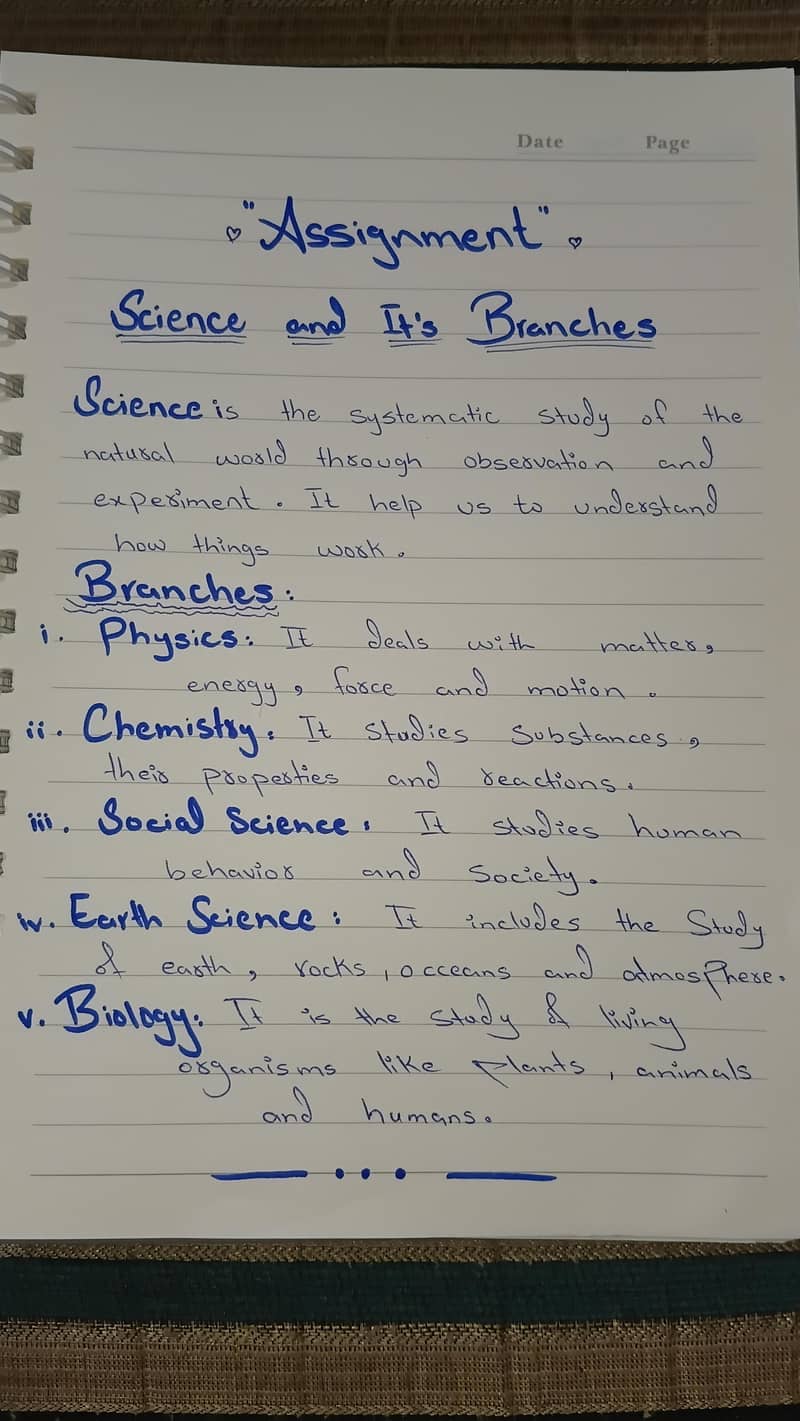 Date Page
"Assignment"
Science and It's Branches
Science is the systematic study of the
natural world through observation and
experiment. It help us to understand
how things work.
Branches:
i. Physics: It deals with matter,
energy, force and motion.
ii. Chemistry: It studies substances,
their properties and reactions.
iii. Social Science: It studies human
behavior and society.
iv. Earth Science: It includes the Study
of earth, rocks, occeans and atmosphere.
v. Biology: It is the study of living
organisms like plants, animals
and humans.